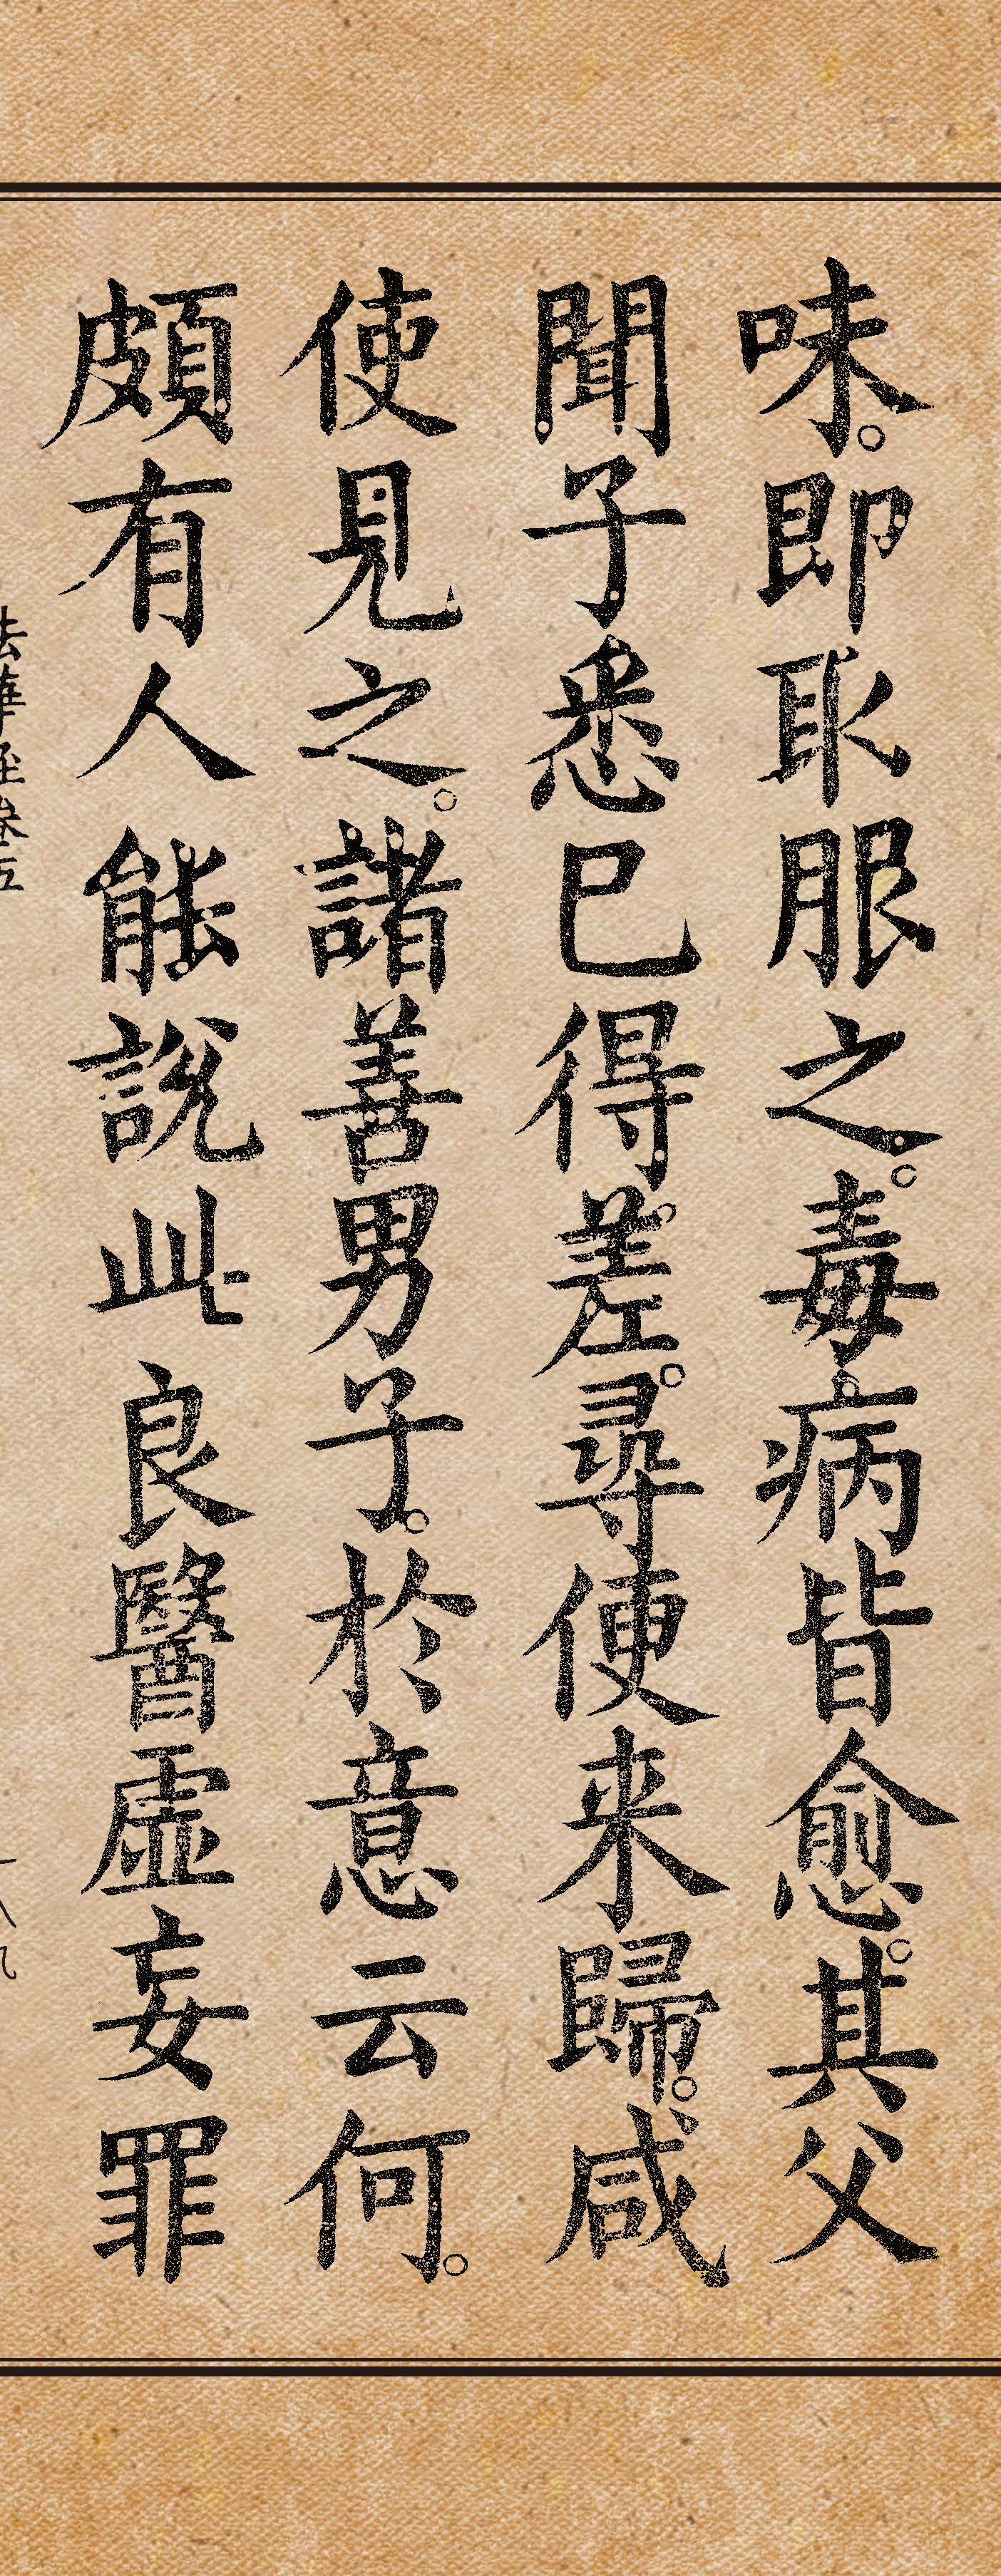 味。即取服之。毒病皆愈。其父
聞子悉已得差。尋便来歸。咸
使見之。諸善男子。於意云何。
頗有人能說此良醫虛妄罪
法華經卷五